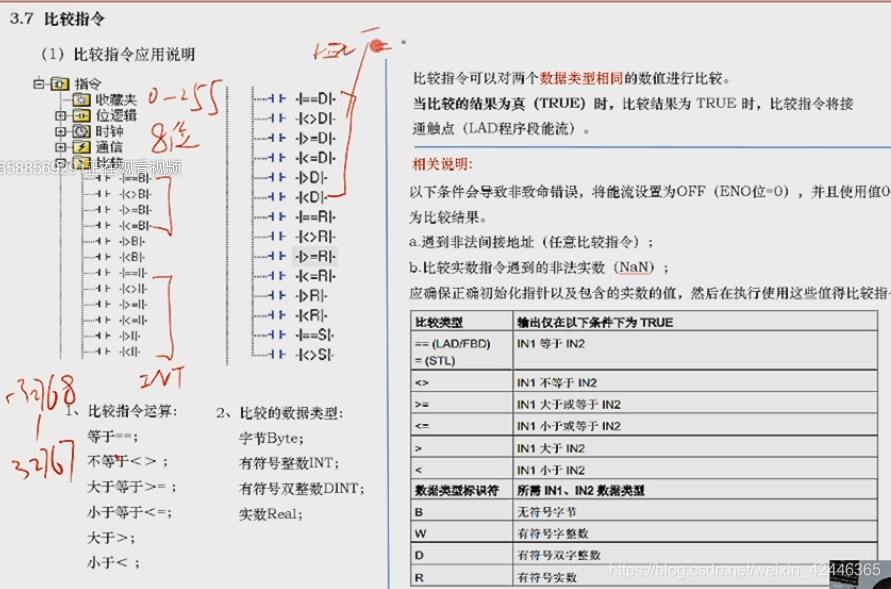 3.7 比较指令
(1) 比较指令应用说明
指令
收藏夹
位逻辑
时钟
通信
比较
658856929 正在观看视频
0-255
8位
-|==B|-
-|<>B|-
-|>=B|-
-|<=B|-
-|>B|-
-|<B|-
-|==I|-
-|<>I|-
-|>=I|-
-|<=I|-
-|>I|-
-|<I|-
INT
-|==D|-
-|<>D|-
-|>=D|-
-|<=D|-
-|>D|-
-|<D|-
-|==R|-
-|<>R|-
-|>=R|-
-|<=R|-
-|>R|-
-|<R|-
-|==S|-
-|<>S|-
-32768
32767
1、比较指令运算:
等于==;
不等于<>;
大于等于>=;
小于等于<=;
大于>;
小于<;
2、比较的数据类型:
字节Byte;
有符号整数INT;
有符号双整数DINT;
实数Real;
比较指令可以对两个数据类型相同的数值进行比较。
当比较的结果为真（TRUE）时，比较结果为 TRUE 时，比较指令将接
通触点（LAD程序段能流）。
相关说明:
以下条件会导致非致命错误，将能流设置为OFF（ENO位=0），并且使用值0
为比较结果。
a.遇到非法间接地址（任意比较指令）；
b.比较实数指令遇到的非法实数（NaN）；
应确保正确初始化指针以及包含的实数的值，然后在执行使用这些值得比较指
比较类型 输出仅在以下条件下为 TRUE
== (LAD/FBD) IN1 等于 IN2
= (STL)
<> IN1 不等于 IN2
>= IN1 大于或等于 IN2
<= IN1 小于或等于 IN2
> IN1 大于 IN2
< IN1 小于 IN2
数据类型标识符 所需 IN1、IN2 数据类型
B 无符号字节
W 有符号字整数
D 有符号双字整数
R 有符号实数
https://blog.csdn.net/weixin_42446365